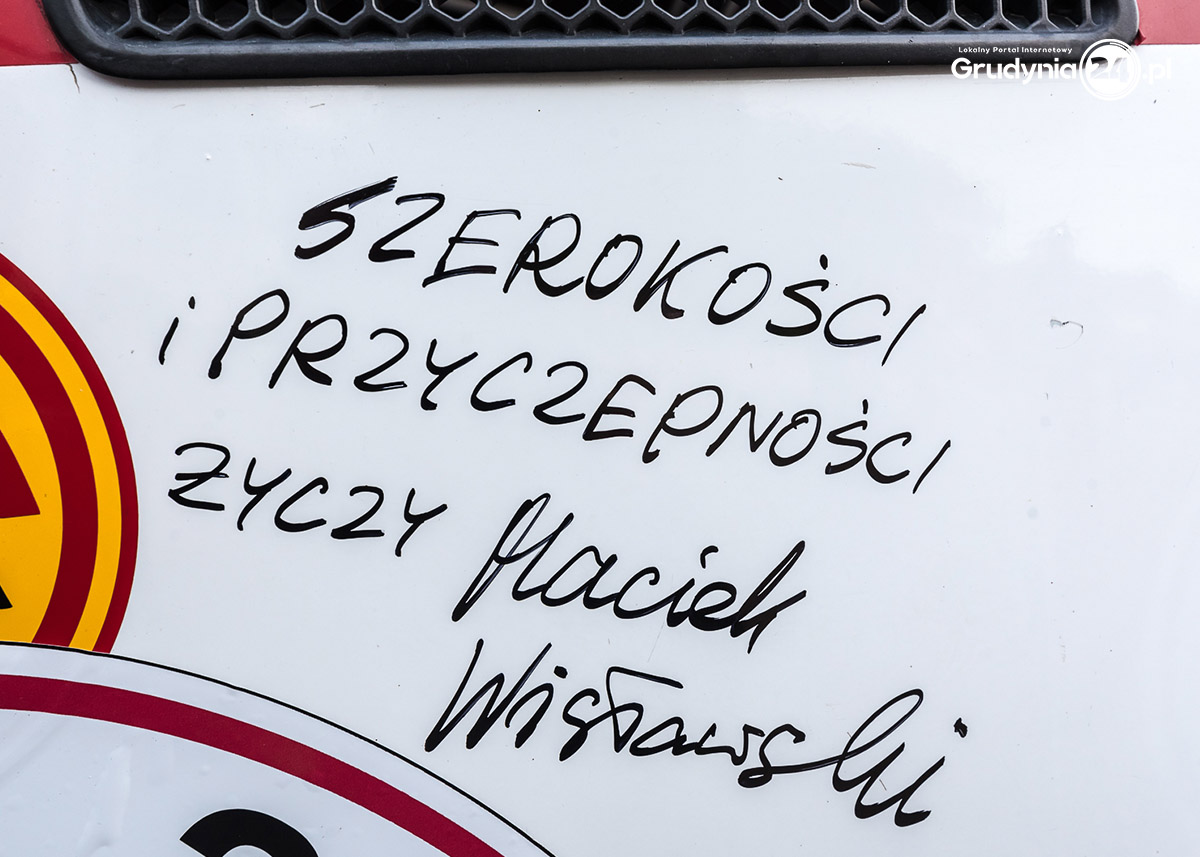 Lokalny Portal Internetowy
Grudynia24.pl
SZEROKOŚCI
i PRZYCZEPNOŚCI
ŻYCZY Maciek
Wisławski